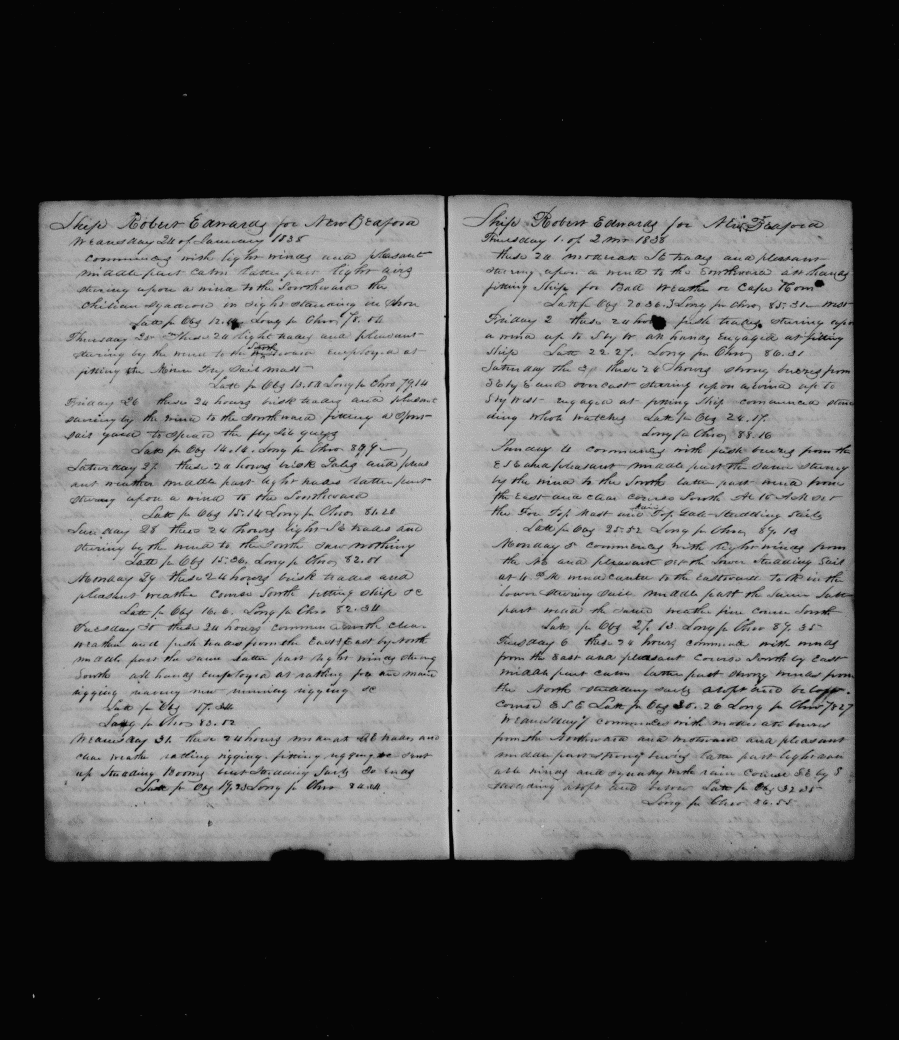 Ship Robert Edwards for New Bedford
Wednesday 24 of January 1838
commences with light winds and pleasant
middle part calm latter part light airs
stering upon a wind to the Southward the
Chilian Squadron in sight standing in Shore
Latt pr Obs 12. Long pr Chro 78.04
Thursday 25 these 24 light trades and pleasant
stering by the wind to the South employed at
fitting the Mizen Try Sail mast
Latt pr Obs 13.03 Long pr Chro 79.14
Friday 26 these 24 hours brisk trades and pleasant
stering by the wind to the Southward fitting a Sprit
sail yard to Spread the fly Gib guys
Latt pr Obs 14.14. Long pr Chro
Saturday 27 these 24 hours brisk Gales and pleas
ant weather middle part light trades latter part
stering upon a wind to the Southward
Latt pr Obs 15.14 Long pr Chro 81.20
Sunday 28 these 24 hours light SE trades and
stering by the wind to the South saw nothing
Latt pr Obs 15.36. Long pr Chro 82.01
Monday 29 these 24 hours brisk trades and
pleasant weather course South fitting ship &c
Latt pr Obs 16.6. Long pr Chro 82.34
Tuesday 30 these 24 hours commences with clear
weather and fresh trades from the East & East by North
middle part the same latter part light winds stering
South all hands employed at ratling fore and main
rigging reaving new running rigging &c
Latt pr Obs 17.34
Long pr Chro 83.02
Wednesday 31. these 24 hours moderate SE trades and
clear weather ratling rigging fitting rigging &c sent
up Studding Booms bent Studding Sails So ends
Latt pr Obs 19.23 Long pr Chro 84.
Ship Robert Edwards for New Bedford
Thursday 1 of 2 mo 1838
these 24 moderate SE trades and pleasant
stering upon a wind to the Southward all hands
fitting Ship for Bad Weather or Cape Horn
Latt pr Obs 20.36.3 Long pr Chro 85.31 West
Friday 2 these 24 hours fresh trades stering upon
a wind up to S by W all hands Engaged at fitting
Ship Latt 22.27. Long pr Chro 86.31
Saturday the 3 these 24 hours strong breezes from
SE by E and overcast stering upon a wind up to
S by West engaged at fitting Ship commenced stan
ding whole watches Latt pr Obs 24.17.
Long pr Chro 88.16
Sunday 4 commences with fresh breezes from the
ESE and pleasant middle part the same stering
by the wind to the South latter part wind from
the East and clear course South At 10 AM set
the Fore Top Mast and Main Top Gall Studding Sails
Latt pr Obs 25.52 Long pr Chro 87.13
Monday 5 commences with light winds from
the NE and pleasant set the lower Studding Sail
at 4 PM wind canted to the Eastward took in the
lower Steering Sail middle part the same latter
part wind the same weather fine course South
Latt pr Obs 27.13 Long pr Chro 87.35
Tuesday 6 these 24 hours commences with winds
from the East and pleasant Course South by East
middle part calm latter part strong winds from
the North studding sails aloft and below.
course ESE Latt pr Obs 30.26 Long pr Chro
Wednesday 7 commences with moderate breezes
from the Northward and Westward and pleasant
middle part strong breezes latter part light vari
able winds and squally with rain Course SE by S
studding aloft and lower Latt pr Obs 32.35
Long pr Chro 86.55